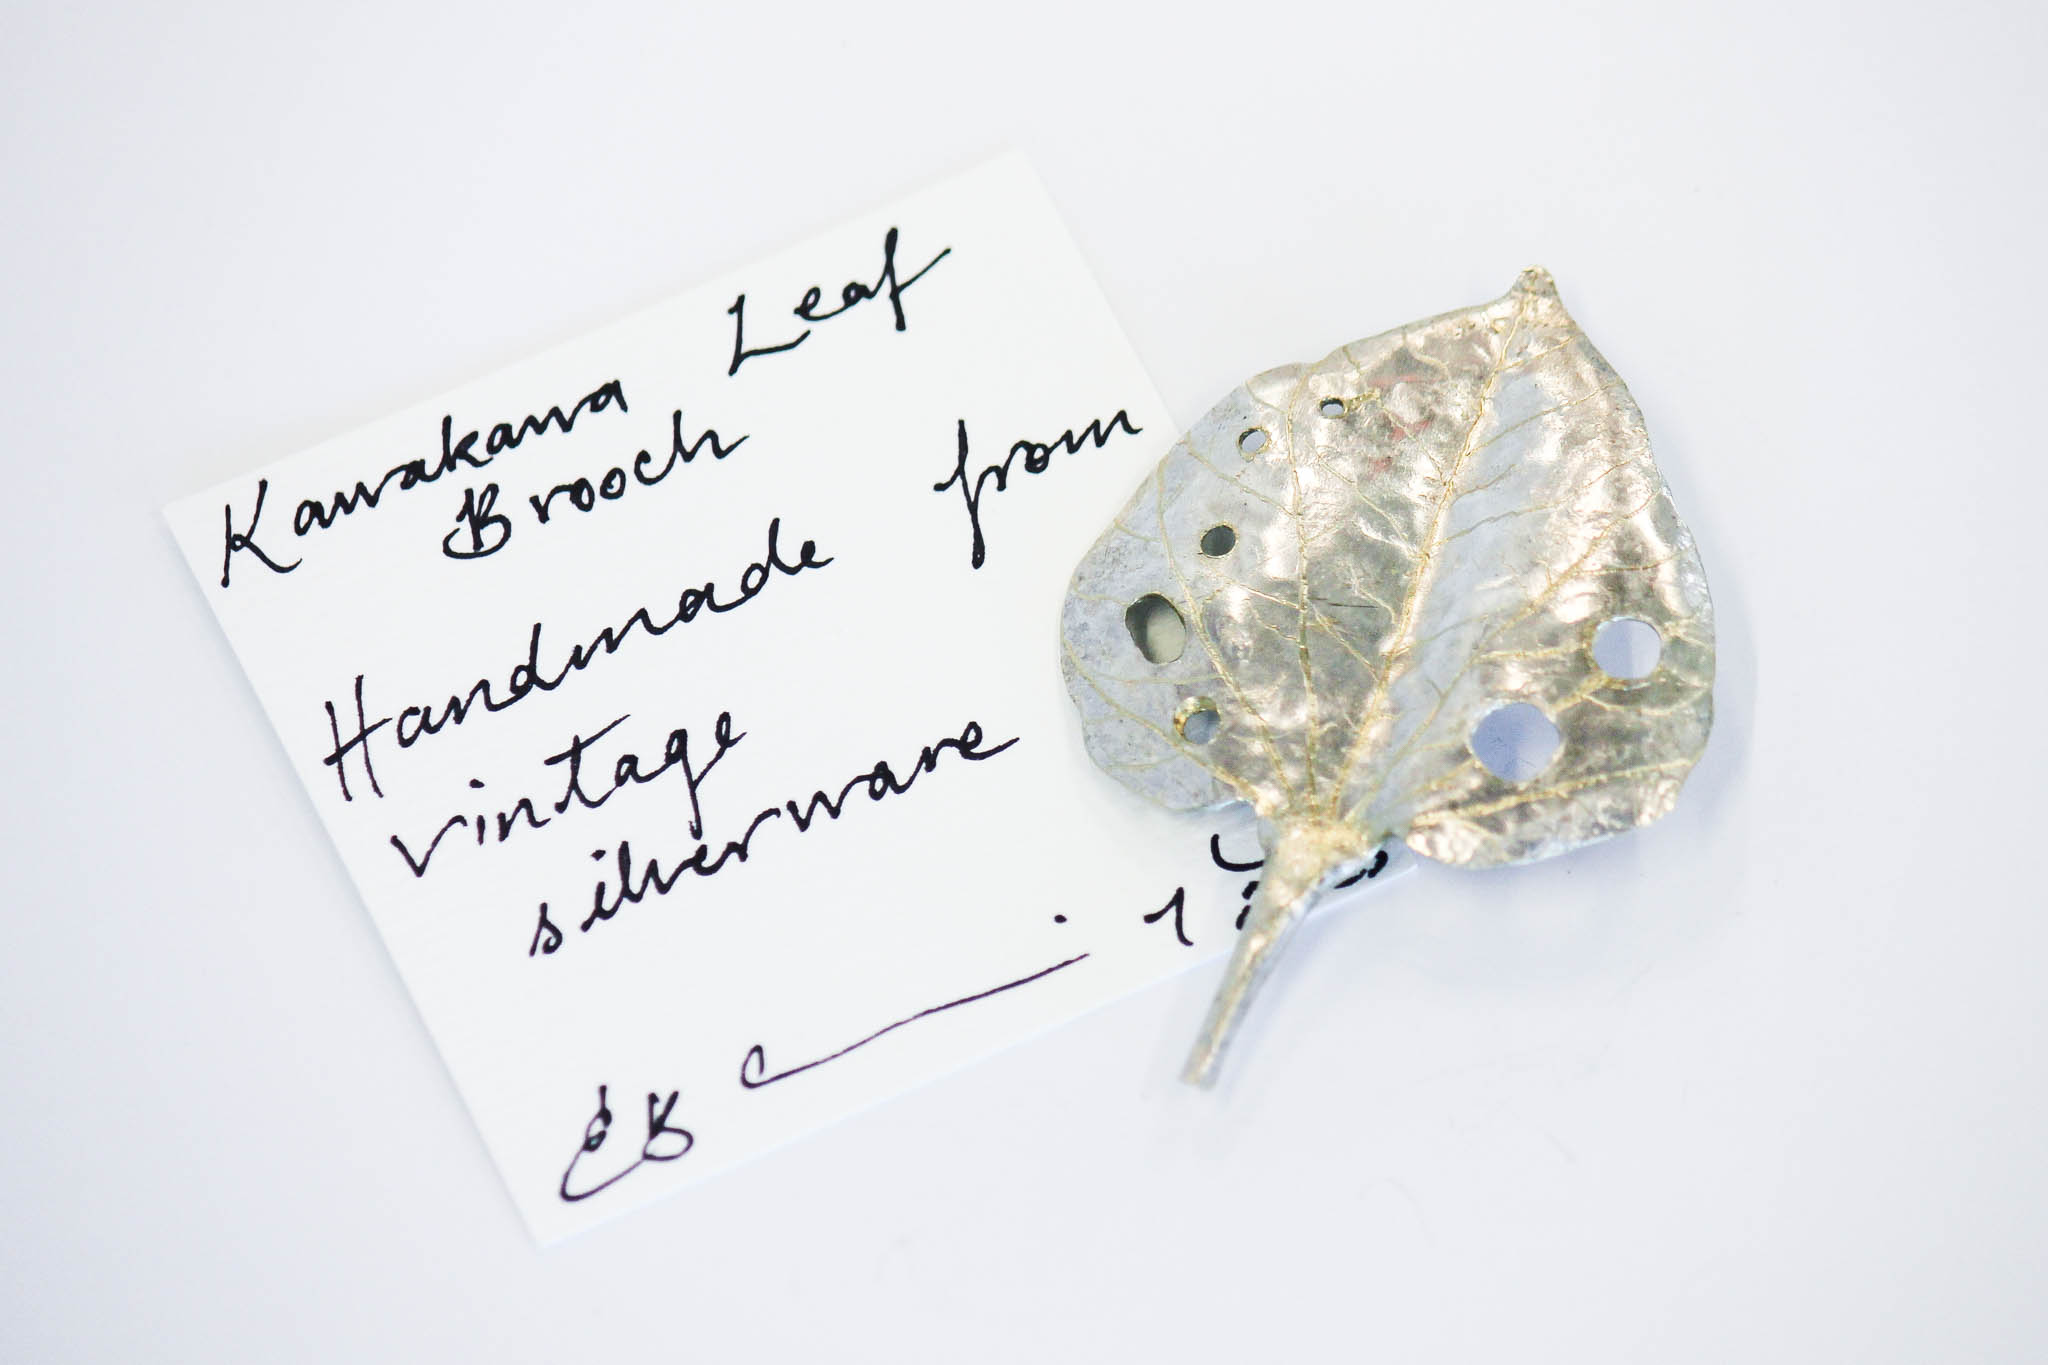 Kawakawa Leaf
Brooch
Handmade from
vintage
silverware
EB